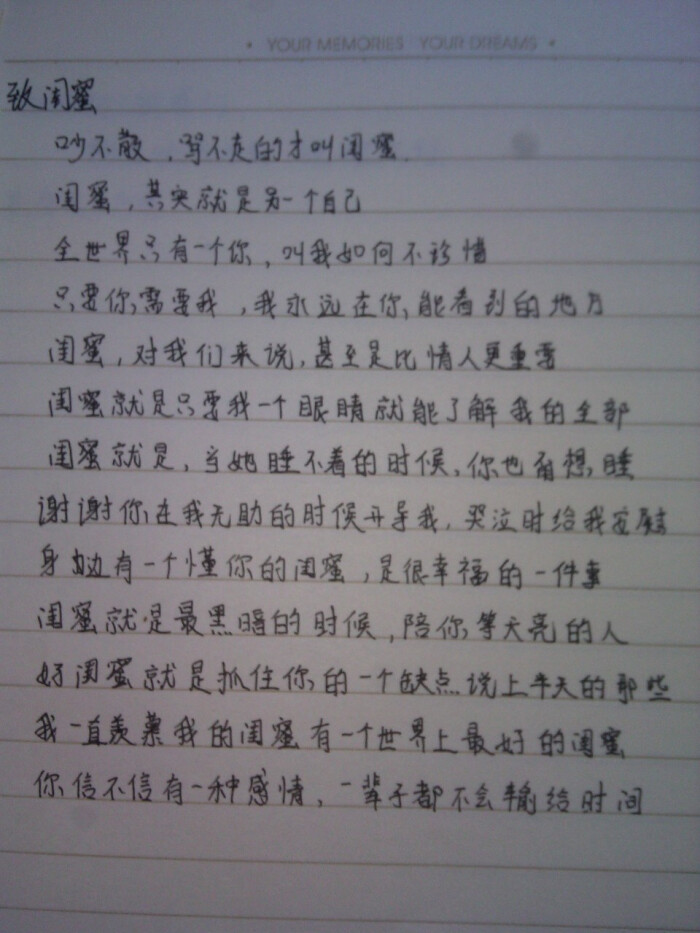 • YOUR MEMORIES YOUR DREAMS •
致闺蜜
吵不散，骂不走的才叫闺蜜.
闺蜜，其实就是另一个自己
全世界只有一个你，叫我如何不珍惜
只要你需要我，我永远在你能看到的地方
闺蜜，对我们来说，甚至是比情人更重要
闺蜜就是只要我一个眼睛就能了解我的全部
闺蜜就是，当她睡不着的时候、你也甭想睡
谢谢你在我无助的时候开导我，哭泣时给我安慰
身边有一个懂你的闺蜜，是很幸福的一件事
闺蜜就是最黑暗的时候，陪你等天亮的人
好闺蜜就是抓住你的一个缺点说上半天的那些
我一直羡慕我的闺蜜有一个世界上最好的闺蜜
你信不信有一种感情，一辈子都不会输给时间